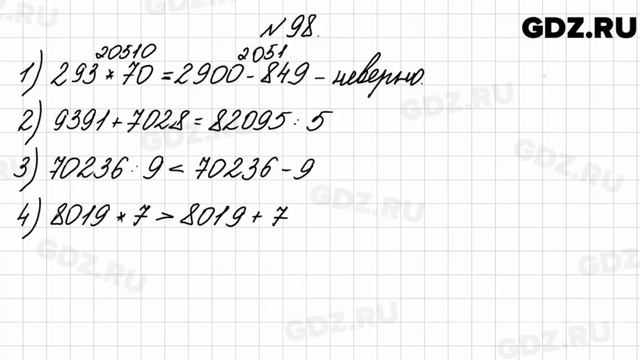 GDZ.RU
№ 98.
20510 2051
1) 293 * 70 = 2900 - 849 - неверно.
2) 9391 + 7028 = 82095 : 5
3) 70236 : 9 < 70236 - 9
4) 8019 * 7 > 8019 + 7
GDZ.RU
GDZ.RU
GDZ.RU
GDZ.RU
GDZ.RU
GDZ.RU
GDZ.RU